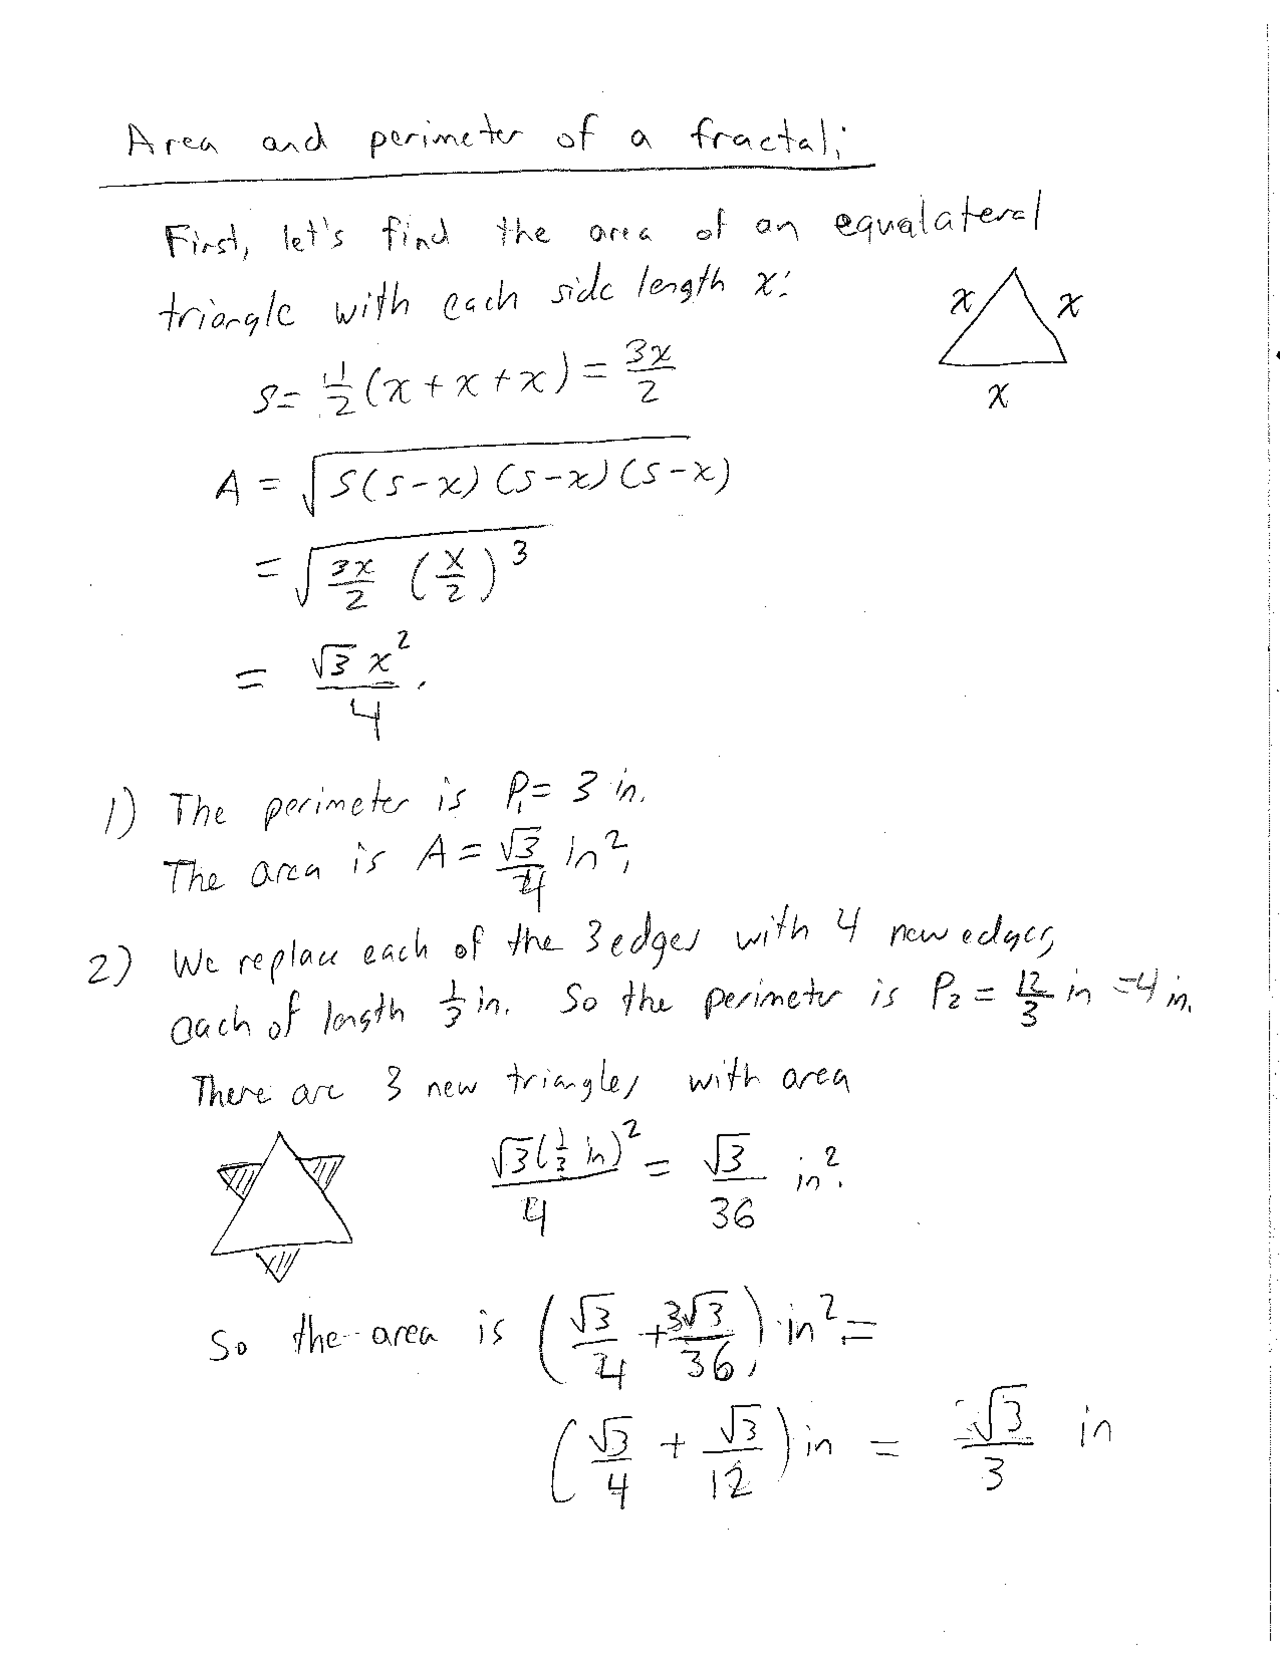 Area and perimeter of a fractal:
First, let's find the area of an equalateral
triangle with each side length x:
x x
x
S = 1/2 (x + x + x) = 3x/2
A = √(S(S-x)(S-x)(S-x))
= √(3x/2 (x/2)^3)
= √3 x^2 / 4.
1) The perimeter is P₁ = 3 in.
The area is A = √3/4 in^2.
2) We replace each of the 3 edges with 4 new edges,
each of length 1/3 in. So the perimeter is P₂ = 12/3 in = 4 in.
There are 3 new triangles with area
√3(1/3 in)^2 / 4 = √3/36 in^2.
So the area is (√3/4 + 3√3/36) in^2 =
(√3/4 + √3/12) in = √3/3 in